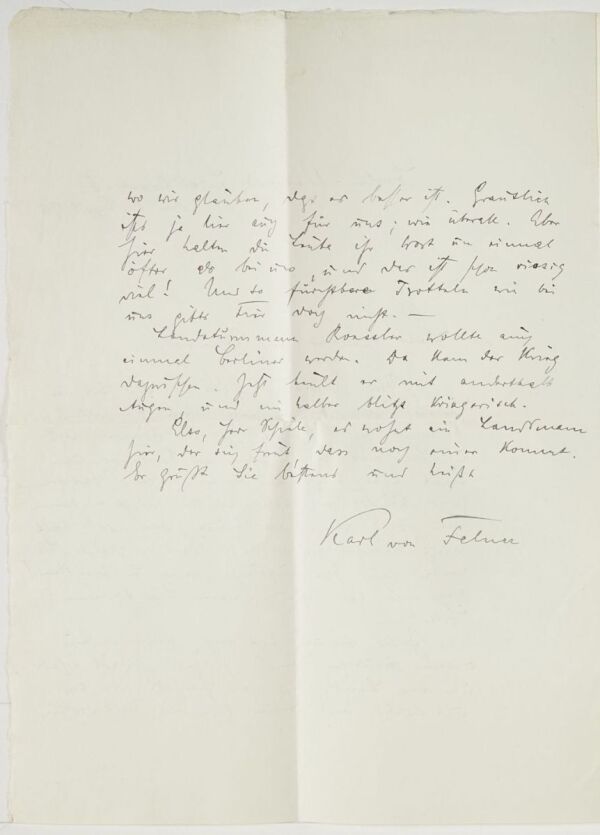 wo wir glauben, dass es besser ist. Grauslich
ists ja hier auch für uns; wie überall. Aber
hier halten die Leute ihr Wort um einmal
öfter, als bei uns, und das ist schon riesig
viel! Und so furchtbare Trotteln wie bei
uns gibts hier doch nicht. —
Landsturmmann Roessler wollte auch
einmal Berliner werden. Da kam der Krieg
dazwischen. Jetzt heult er mit anderthalb
Augen, und ein halbes blitzt kriegerisch.
Also, Herr Schiele, es wohnt ein Landsmann
hier, der sich freut, dass noch einer kommt.
Er grüßt Sie bestens und heißt
Karl von Felner